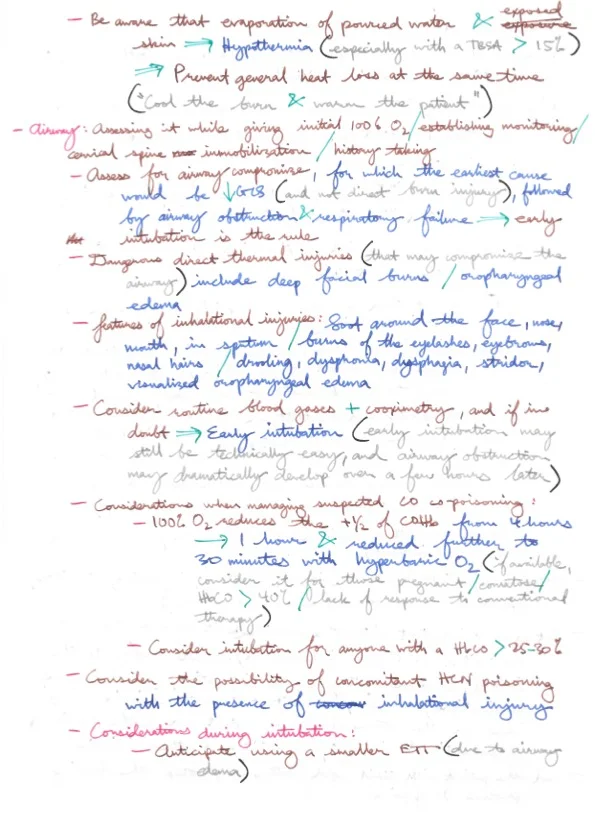 - Be aware that evaporation of poured water & exposed
skin ⇒ Hypothermia (especially with a TBSA > 15%)
⇒ Prevent general heat loss at the same time
("Cool the burn & warm the patient")
- Airway: Assessing it while giving initial 100% O2/establishing monitoring/
cervical spine immobilization / history taking
- Assess for airway compromise, for which the earliest cause
would be ↓GCS (and not direct burn injury), followed
by airway obstruction & respiratory failure → early
intubation is the rule
- Dangerous direct thermal injuries (that may compromise the
airway) include deep facial burns / oropharyngeal
edema
- features of inhalational injuries: Soot around the face, nose,
mouth, in sputum / burns of the eyelashes, eyebrows,
nasal hairs / drooling, dysphonia, dysphagia, stridor,
visualized oropharyngeal edema
- Consider routine blood gases + cooximetry, and if in
doubt ⇒ Early intubation (early intubation may
still be technically easy, and airway obstruction
may dramatically develop over a few hours later)
- Considerations when managing suspected CO co-poisoning:
- 100% O2 reduces the t½ of COHb from 4 hours
→ 1 hour & reduced further to
30 minutes with hyperbaric O2 (if available,
consider it for those pregnant / comatose/
HbCO > 40% / lack of response to conventional
therapy)
- Consider intubation for anyone with a HbCO > 25-30%
- Consider the possibility of concomitant HCN poisoning
with the presence of inhalational injury
- Considerations during intubation:
- Anticipate using a smaller ETT (due to airway
edema)